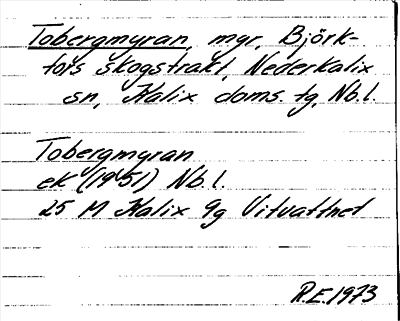 Tobergmyran, mgr, Björk-
fors skogstrakt, Nederkalix
sn, Kalix doms. tg, Nb.l.
Tobergmyran
ek (1951) Nb.l.
25 M Kalix 9g Vitvattnet
R.E. 1973